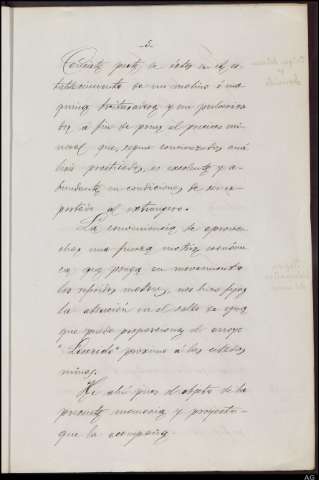 -5-
Consiste pues la idea en el es-
tablecimiento de un molino ó má-
quina trituradora y un pulveriza-
dor, á fin de poner el precioso mi-
neral que, segun concienzudos aná-
lisis practicados, es excelente y a-
bundante en condiciones de ser ex-
portado al extrangero.
La conveniencia de aprove-
char una fuerza motriz económi-
ca que ponga en movimiento
los referidos motores, nos hizo fijar
la atención en el salto de agua
que puede proporcionar el arroyo
"Loureido" proximo á las citadas
minas.
He ahí pues el objeto de la
presente memoria y proyecto
que la acompaña
AG